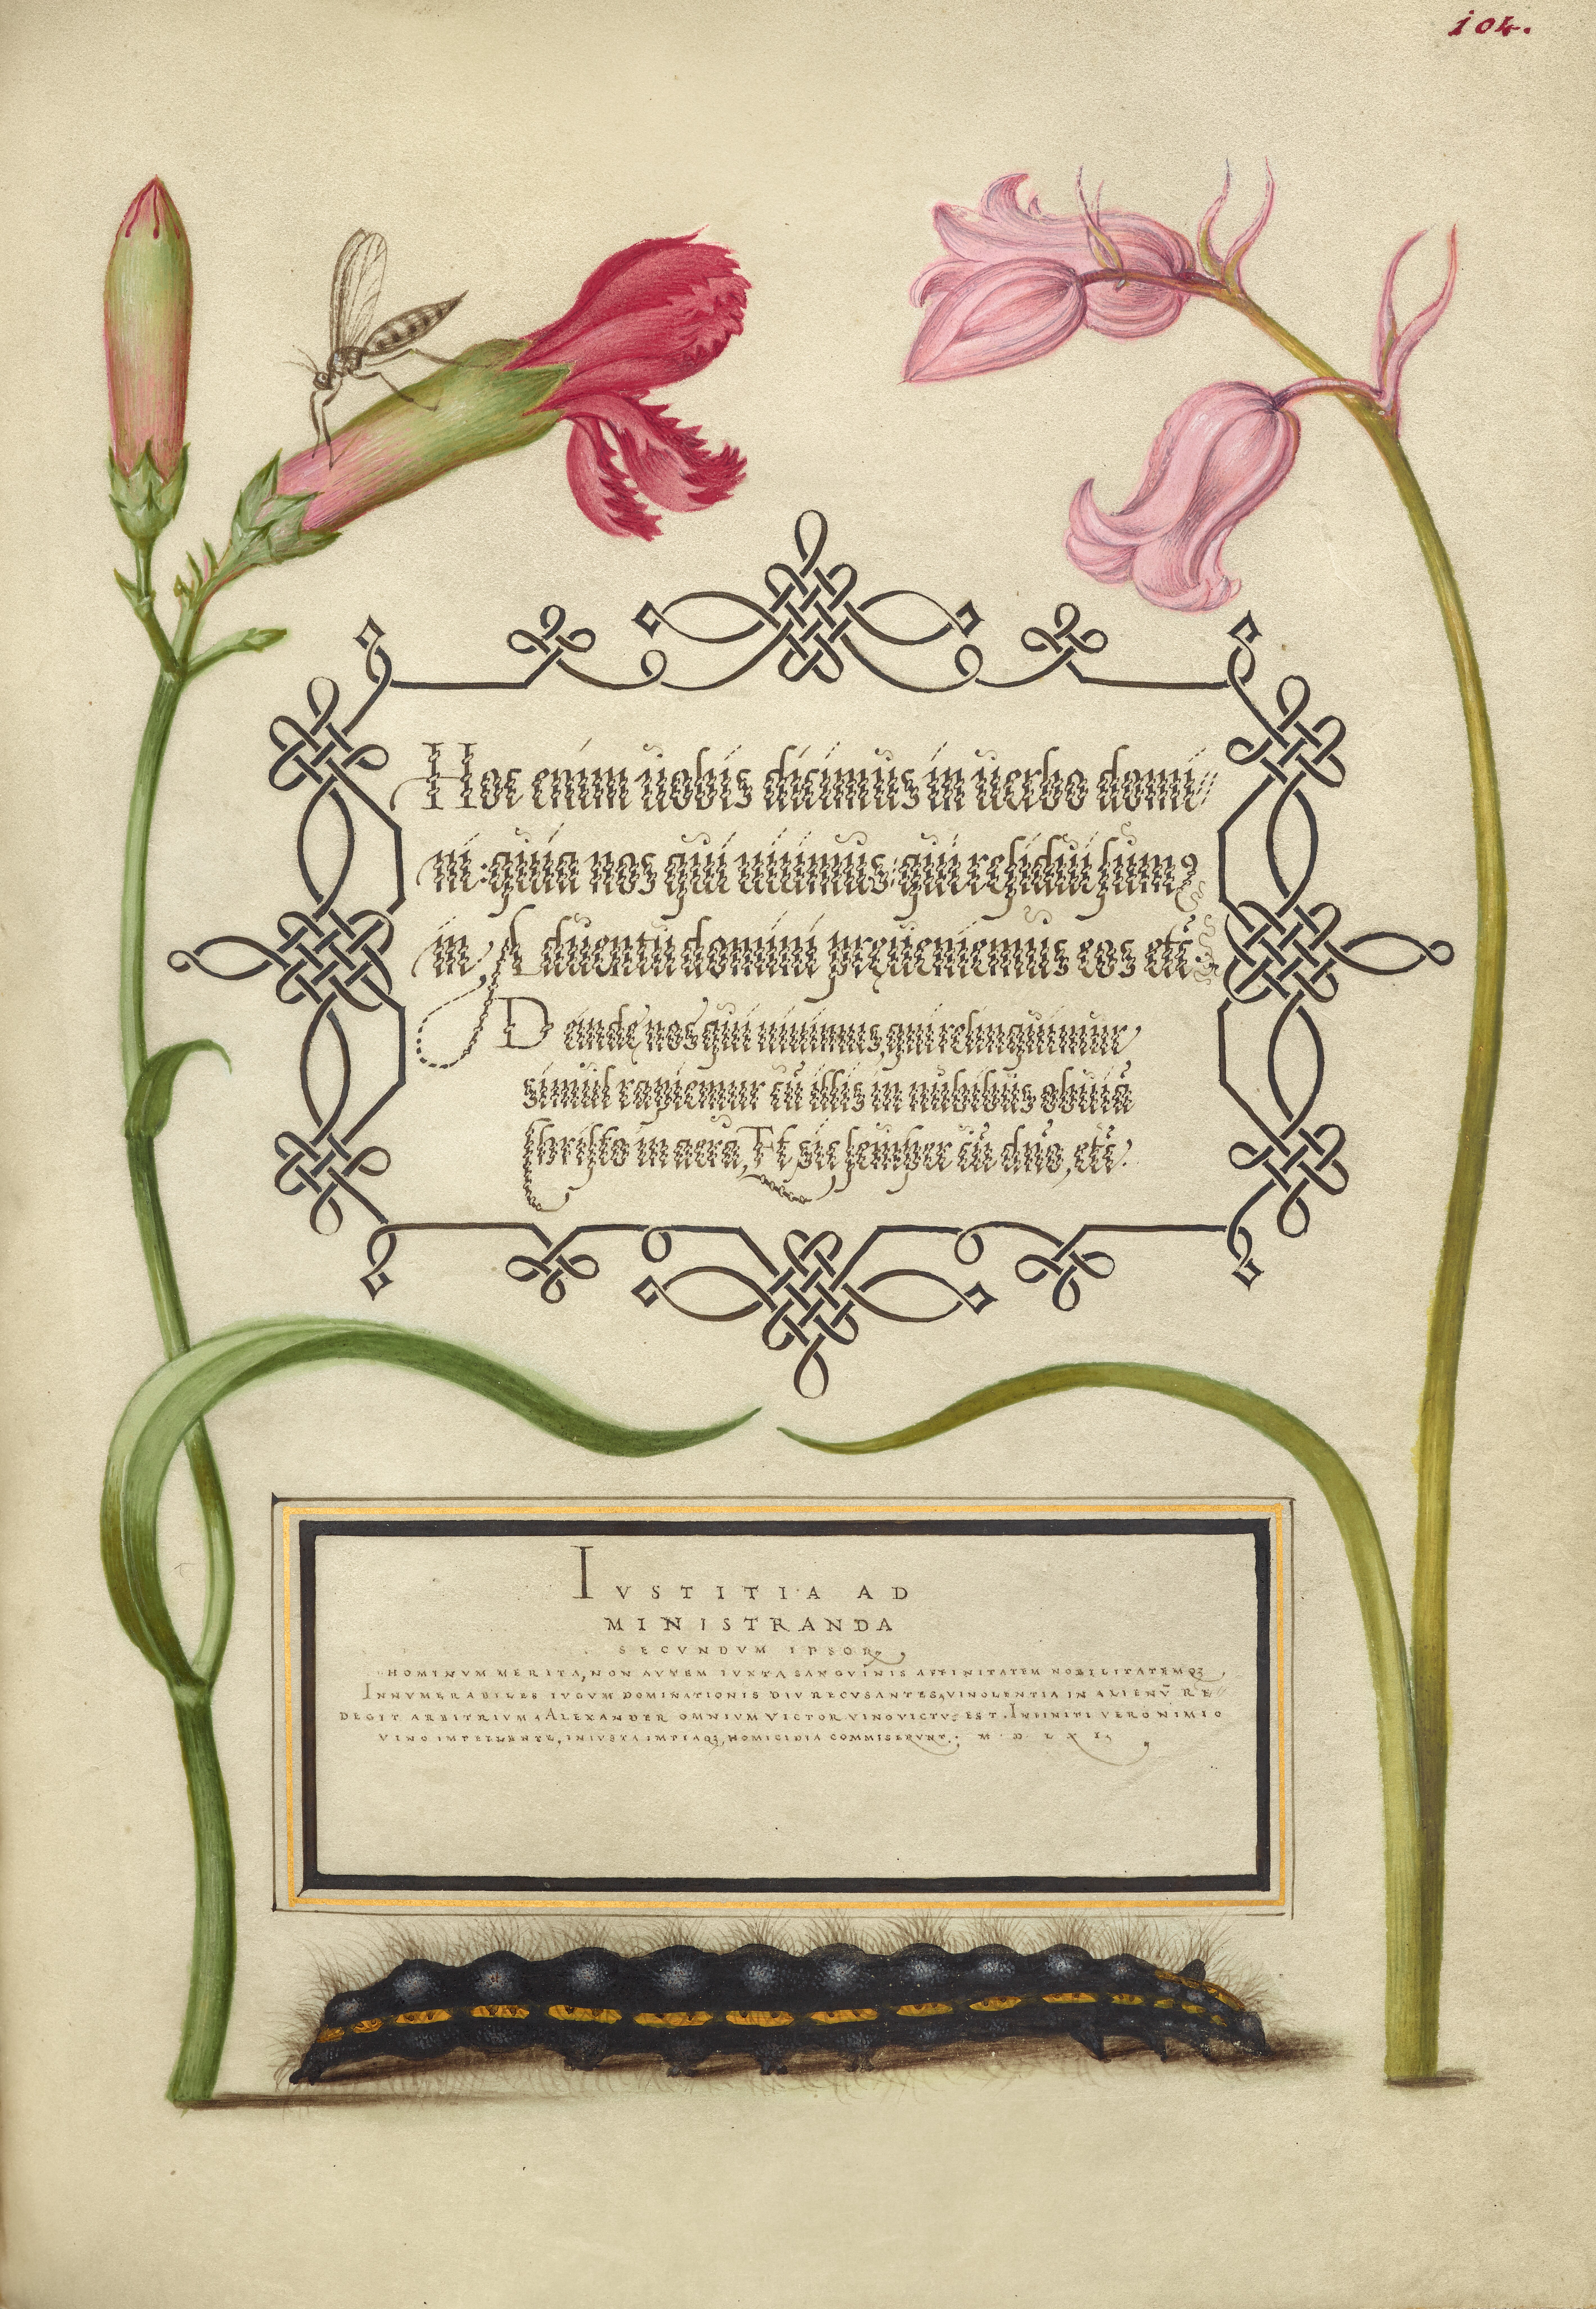 104.
Hoc enim uobis dicimus in uerbo domi//
ni: quia nos qui uiuimus, qui residui sumꝯ
in Aduentu domini preueniemus eos etc̃.
Deinde nos qui uiuimus, qui relinquimur,
simul rapiemur cũ illis in nubibus obuiã
Christo in aera, Et sic semper cũ dño, etc̃.
IVSTITIA AD
MINISTRANDA
SECVNDVM IPSORꝝ
HOMINVM MERITA, NON AVTEM IVXTA SANGVINIS AFFINITATEM NOBILITATEMQꝫ,
INNVMERABILES IVGVM DOMINATIONIS DIV RECVSANTES, VINOLENTIA IN ALIENṼ RE//
DEGIT ARBITRIVM. ALEXANDER OMNIVM VICTOR VINO VICTVS EST. INFINITI VERO NIMIO
VINO IMPELLENTE, INIVSTA IMPIAQꝫ HOMICIDIA COMMISERVNT. M D LXII,